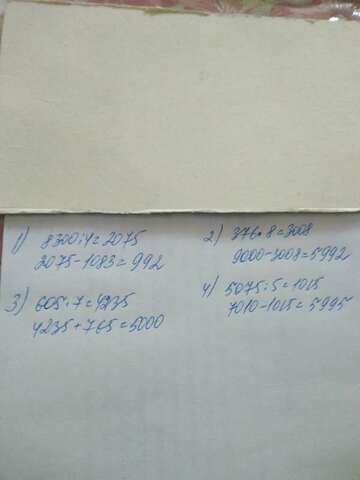 1) 8300:4=2075
2075-1083=992
2) 376·8=3008
9000-3008=5992
3) 605·7=4235
4235+765=5000
4) 5075:5=1015
7010-1015=5995